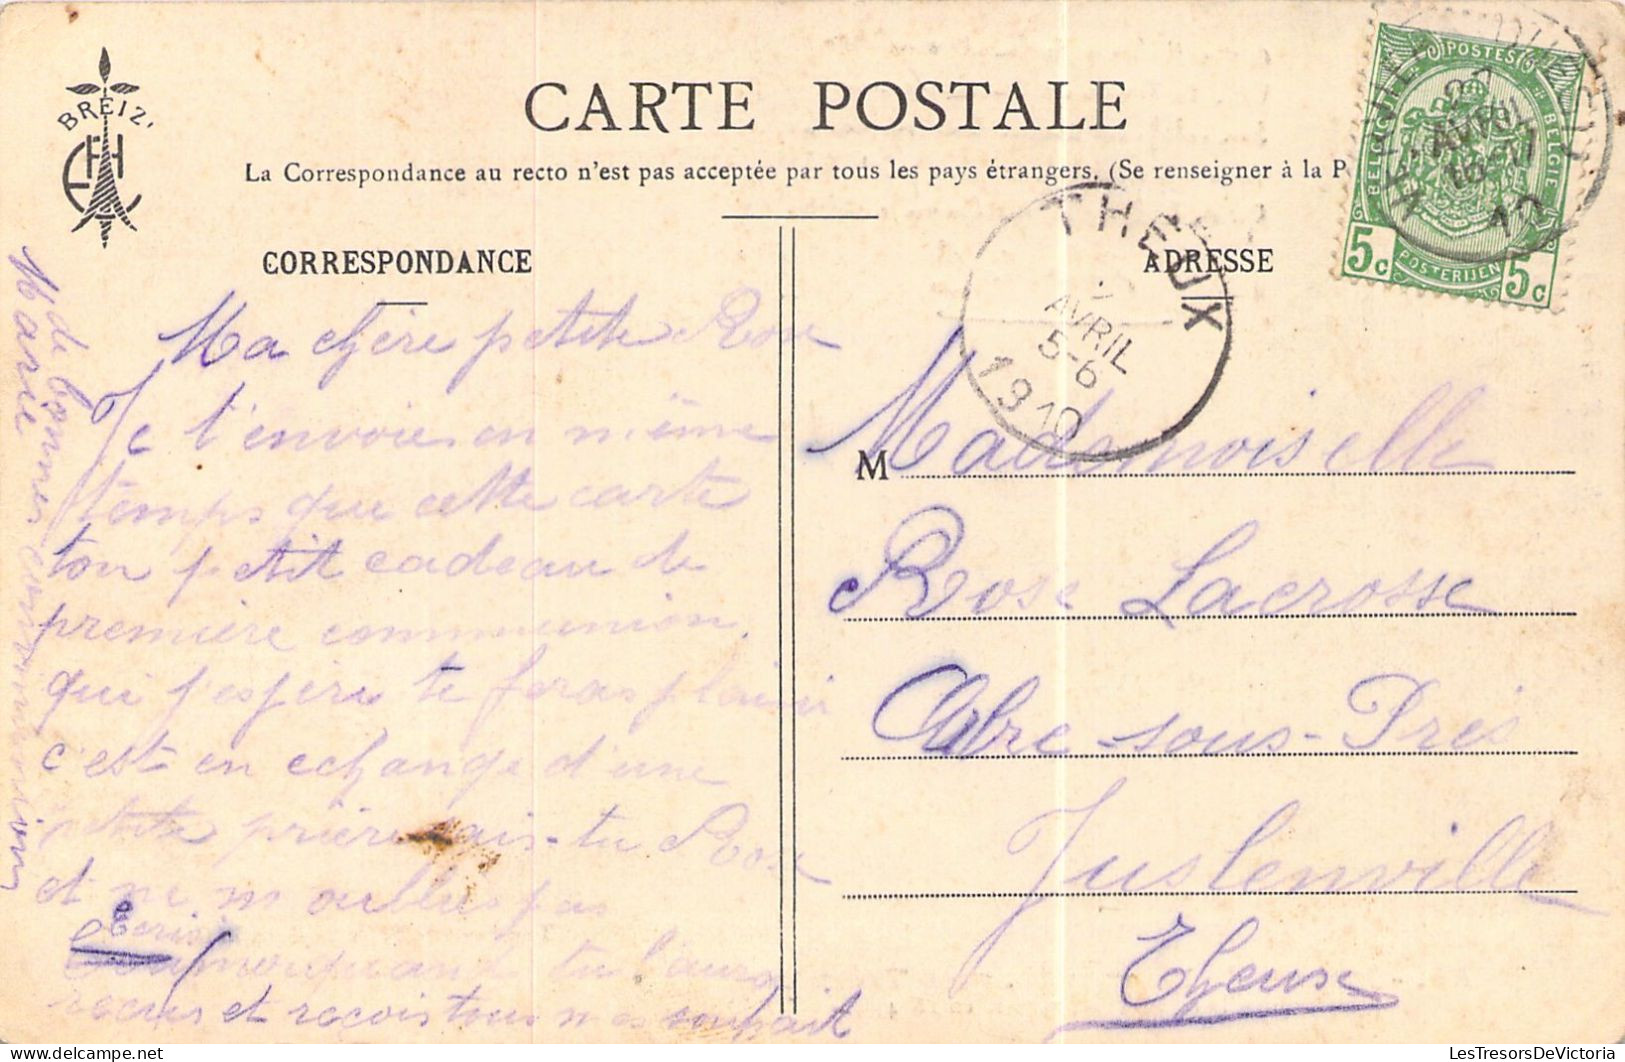 BREIZ'
CARTE POSTALE
La Correspondance au recto n'est pas acceptée par tous les pays étrangers. (Se renseigner à la P
CORRESPONDANCE
ADRESSE
POSTES
BELGIQUE
BELGIË
POSTERIJEN
5c
5c
AVRIL
10
THEUX
AVRIL
5-6
1910
Ma chère petite Rose
Je t'envoie en même
temps que cette carte
ton petit cadeau de
première communion
qui j'espère te feras plaisir
c'est en echange d'une
petite prière sais-tu Rose
et ne m'oublies pas
Ecris
moi quand tu l'auras
recus et recois tous mes souhait
de bonnes communion
Marie
M Mademoiselle
Rose Lacrosse
Arbre-sous-Prés
Juslenville
Theux
LesTresorsDeVictoria
© www.delcampe.net